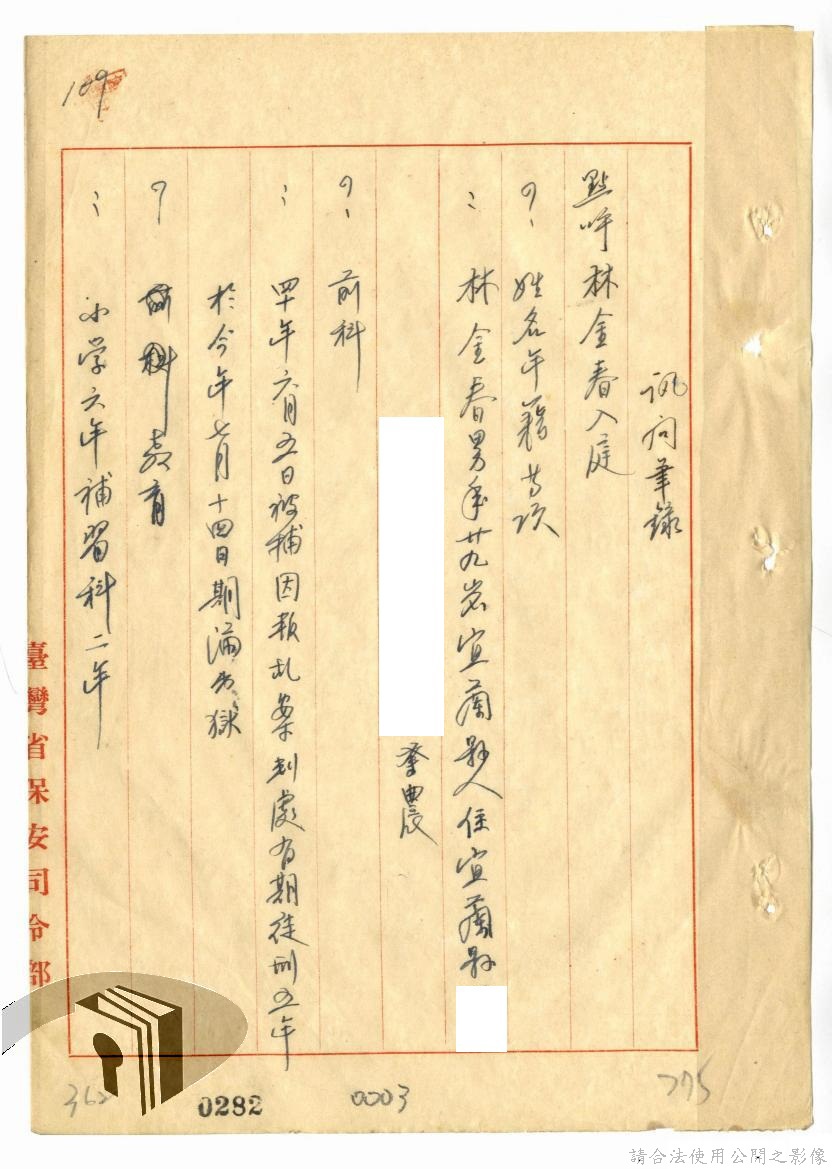 訊问筆錄
點呼林金春入庭
?: 姓名年籍等項
: 林金春男年廿九岁宜蘭縣人住宜蘭縣
業農
?: 前科
: 四十年六月五日被捕因叛乱案判處有期徒刑五年
於今年七月十四日期滿出獄
? 教育
: 小学六年補習科二年
臺灣省保安司令部
109
362
0282
0003
775
請合法使用公開之影像